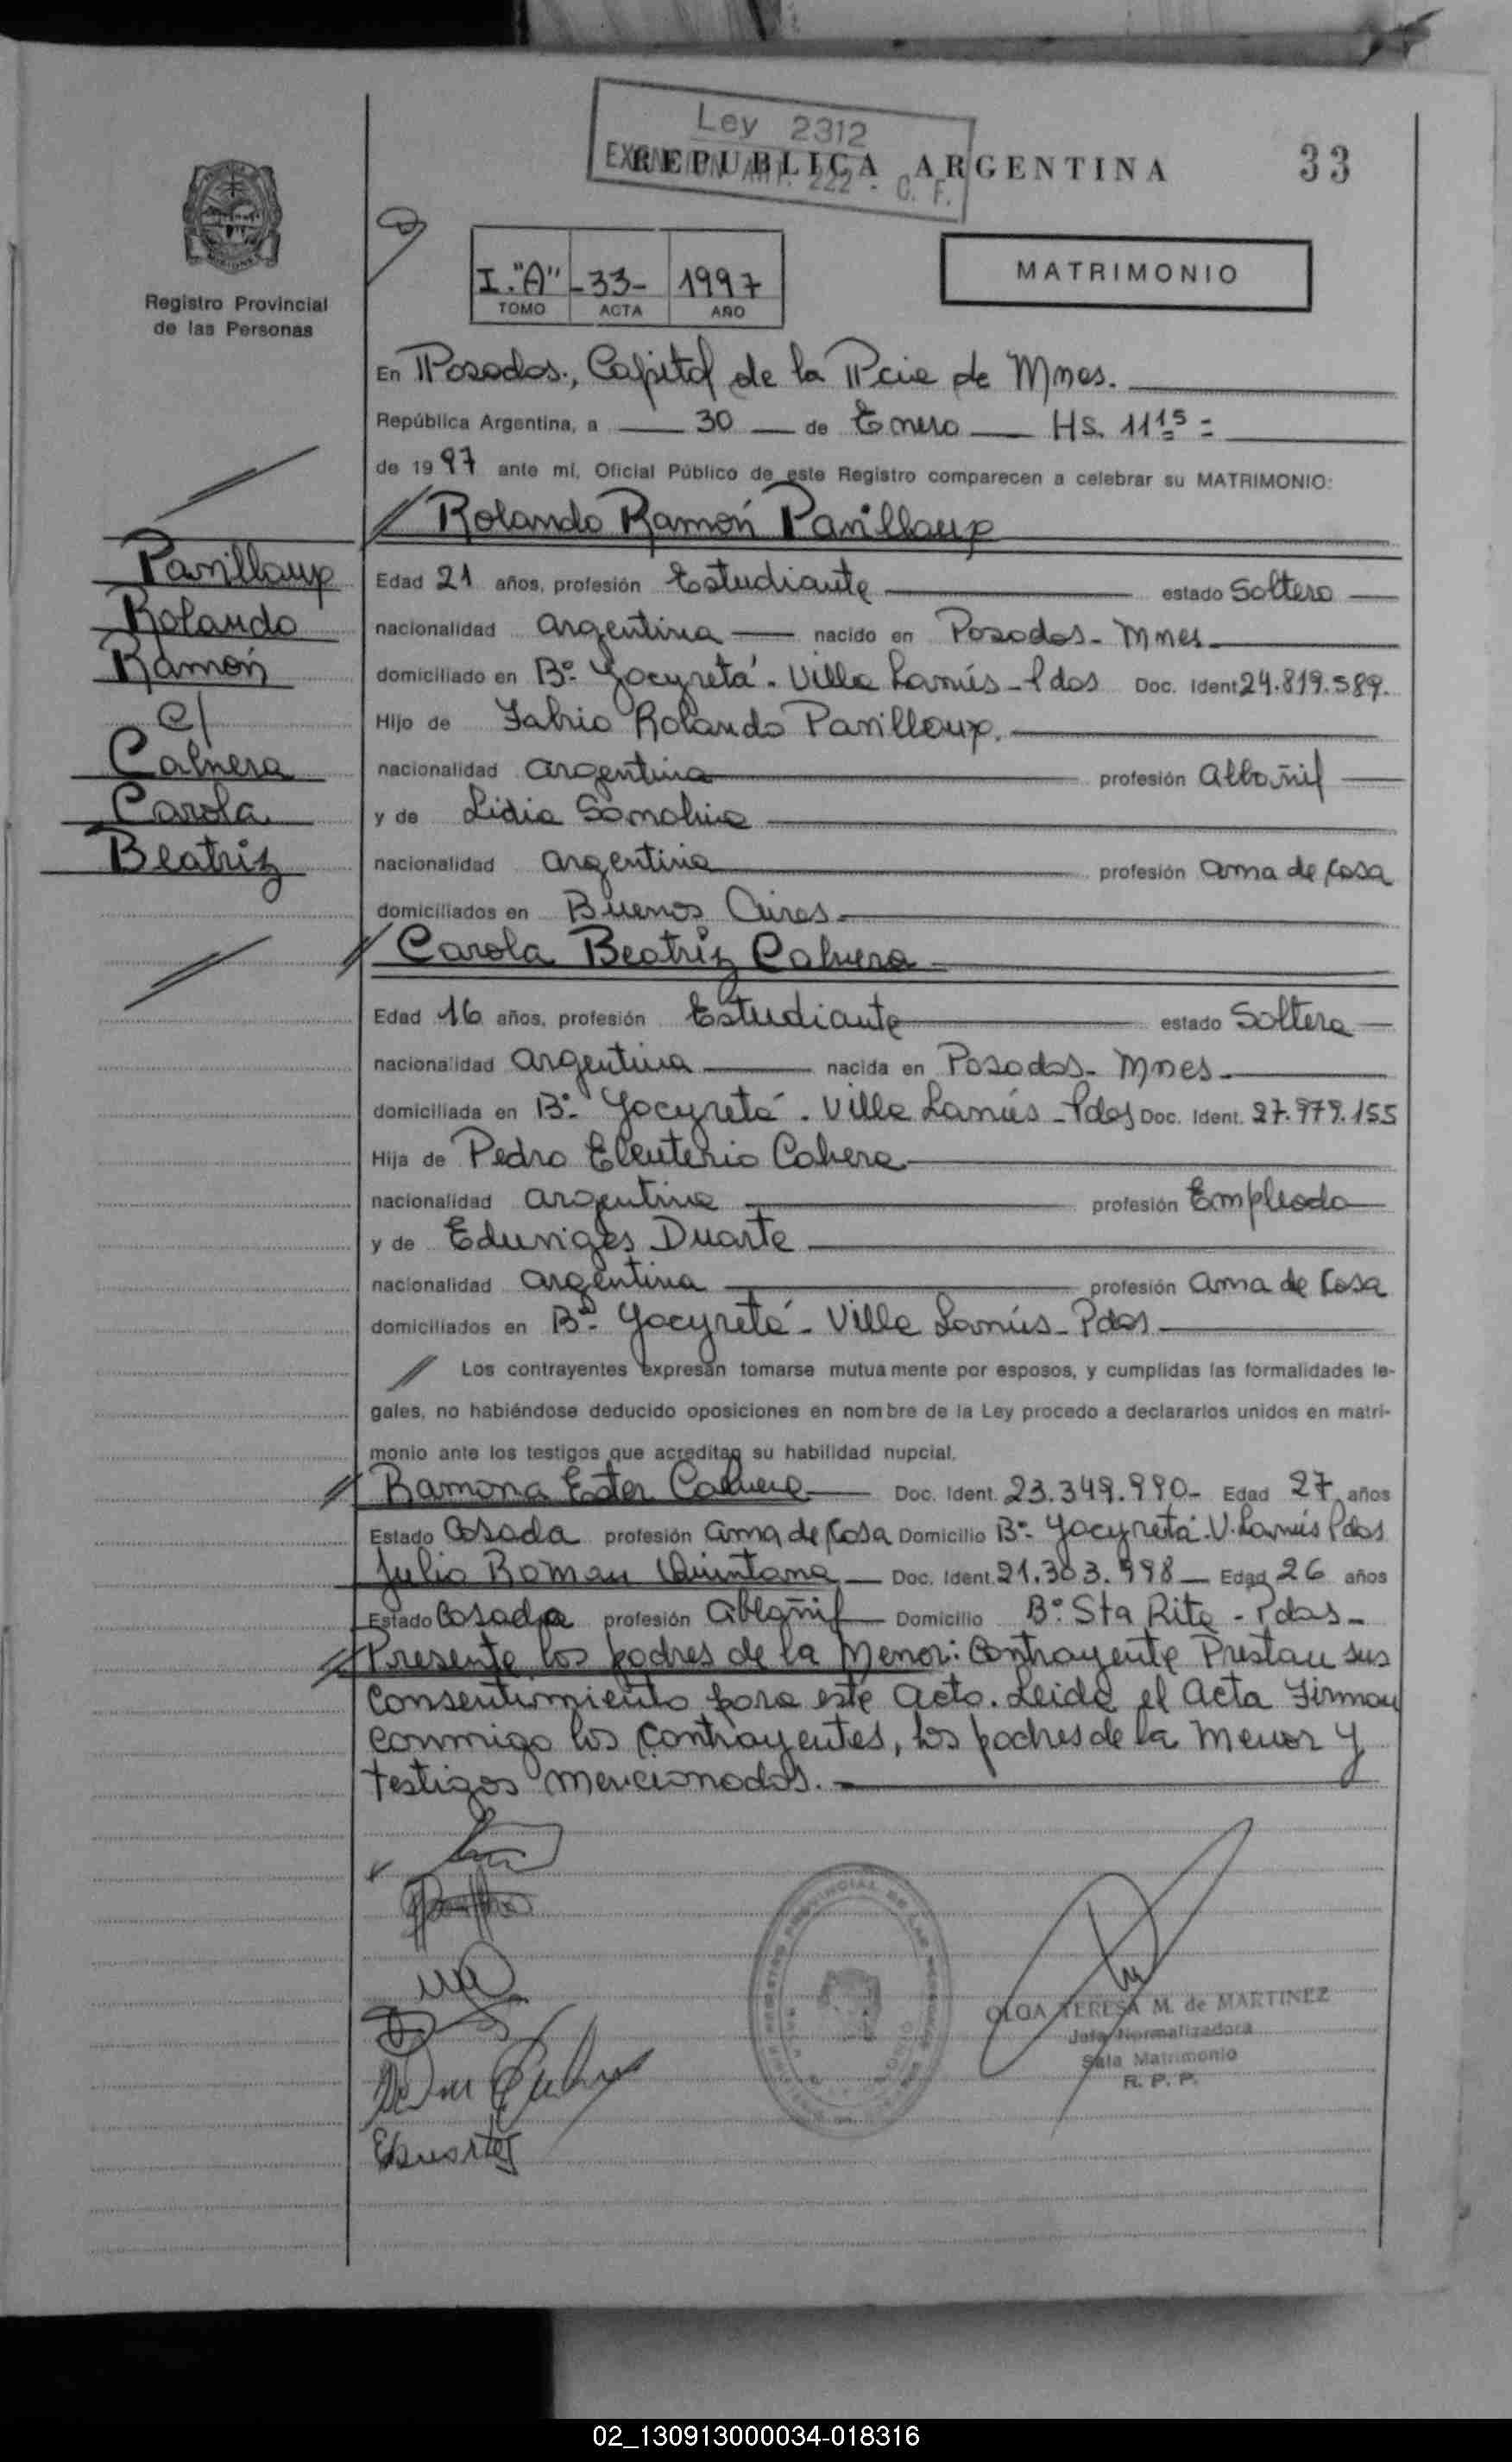 Ley 2312
EXENCION ART. 222 - C. F.
REPUBLICA ARGENTINA
33
Registro Provincial
de las Personas
I."A" -33- 1997
TOMO ACTA AÑO
MATRIMONIO
En Posadas., Capital de la Pcia de Mnes.
República Argentina, a 30 de Enero Hs. 11 15 =
de 1997 ante mí, Oficial Público de este Registro comparecen a celebrar su MATRIMONIO:
Rolando Ramón Parilloup
Parilloup
Rolando
Ramón
c/
Cabrera
Carola
Beatriz
Edad 21 años, profesión Estudiante estado Soltero
nacionalidad argentina nacido en Posadas - Mnes
domiciliado en Bº- Yacyretá - Villa Lanús - Pdas Doc. Ident 24.819.589.
Hijo de Rolando Parilloup.
nacionalidad argentina profesión Albañil
y de Lidia
nacionalidad argentina profesión ama de casa
domiciliados en Buenos Aires
Carola Beatriz Cabrera
Edad 16 años, profesión Estudiante estado Soltera
nacionalidad argentina nacida en Posadas - Mnes
domiciliada en Bº- Yacyretá - Villa Lanús - Pdas Doc. Ident. 27.979.155
Hija de Pedro Eleuterio Cabrera
nacionalidad argentina profesión Empleado
y de Eduviges Duarte
nacionalidad argentina profesión ama de casa
domiciliados en Bº- Yacyretá - Villa Lanús - Pdas
Los contrayentes expresan tomarse mutuamente por esposos, y cumplidas las formalidades le-
gales, no habiéndose deducido oposiciones en nombre de la Ley procedo a declararlos unidos en matri-
monio ante los testigos que acreditan su habilidad nupcial.
Ramona Ester Cabrera Doc. Ident. 23.349.990- Edad 27 años
Estado Casada profesión ama de casa Domicilio Bº- Yacyretá - V. Lanús Pdas
Julio Roman Quintana Doc. Ident. 21.303.998 Edad 26 años
Estado Casado profesión albañil Domicilio Bº Sta Rita - Pdas -
Presente los padres de la Menor: Contrayente Prestan sus
consentimiento para este acto. Leida el Acta Firman
conmigo los contrayentes, los padres de la menor y
testigos mencionados.
OLGA TERESA M. de MARTINEZ
Jefa Normalizadora
Sala Matrimonio
R. P. P.
EDuarte
02_130913000034-018316